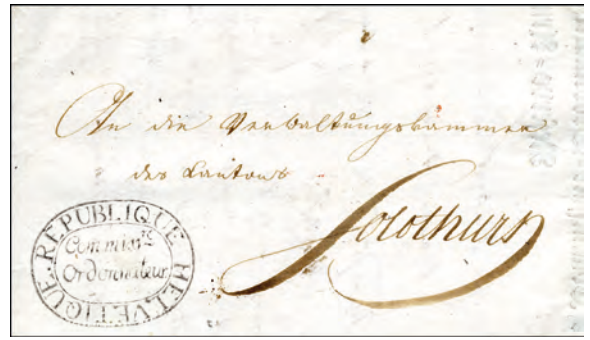 An die Verwaltungskammer
des Kantons
Solothurn
RÉPUBLIQUE HELVETIQUE
Commiss.re
Ordonnateur